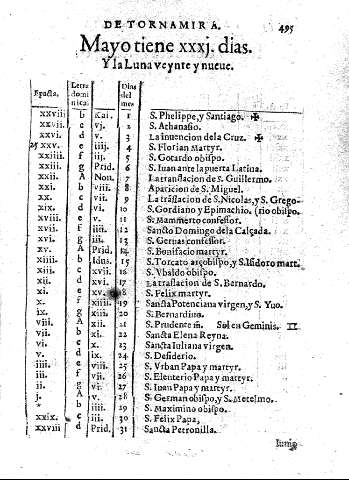 DE TORNAMIRA. 495
Mayo tiene xxxj. dias.
Y la Luna veynte y nueue.
Epacta. Letra domi nica. Dias del mes
xxviii b Kal. 1 S. Phelippe, y Santiago. ✠
xxvii. c vj. 2 S. Athanasio.
xxvi. d v. 3 La inuencion de la Cruz. ✠
25 xxv. e iiij. 4 S. Florian Martyr.
xxiiii. f iij. 5 S. Gotardo obispo.
xxiii. g Prid. 6 S. Iuan ante la puerta Latina.
xxii. A Non. 7 La translacion de S. Guillermo.
xxi. b viii. 8 Aparicion de S. Miguel.
xx. c vii. 9 La traslacion de S. Nicolas, y S. Grego-
xix. d vi. 10 S. Gordiano y Epimachio, (rio obispo
xviii. e v. 11 S. Mammerto confessor.
xvii. f iiii. 12 Sancto Domingo de la Calçada.
xvi. g iii. 13 S. Geruas confessor.
xv. A Prid. 14 S. Bonifacio martyr.
xiiii. b Idus. 15 S. Torcato arçobispo, y S. Isidoro mart.
xiii. c xvii. 16 S. Vbaldo obispo.
xii. d xvi. 17 La traslacion de S. Bernardo.
xi. e xv. 18 S. Felix martyr.
x. f xiiii. 19 Sancta Potenciana virgen, y S. Yuo.
ix. g xiii. 20 S. Bernardino.
viii. A xii. 21 S. Prudente m. Sol en Geminis. II
vii. b xi. 22 Sancta Elena Reyna.
vi. c x. 23 Sancta Iuliana virgen.
v. d ix. 24 S. Desiderio.
iiii. e viii. 25 S. Vrban Papa y martyr.
iii. f vii. 26 S. Eleuterio Papa y martyr.
ii. g vi. 27 S. Iuan Papa y martyr.
j. A v. 28 S. German obispo, y S.
* b iiii. 29 S. Maximino obispo.
xxix. c iii. 30 S. Felix Papa,
xxviii d Prid. 31 Sancta Petronilla.
Iunio